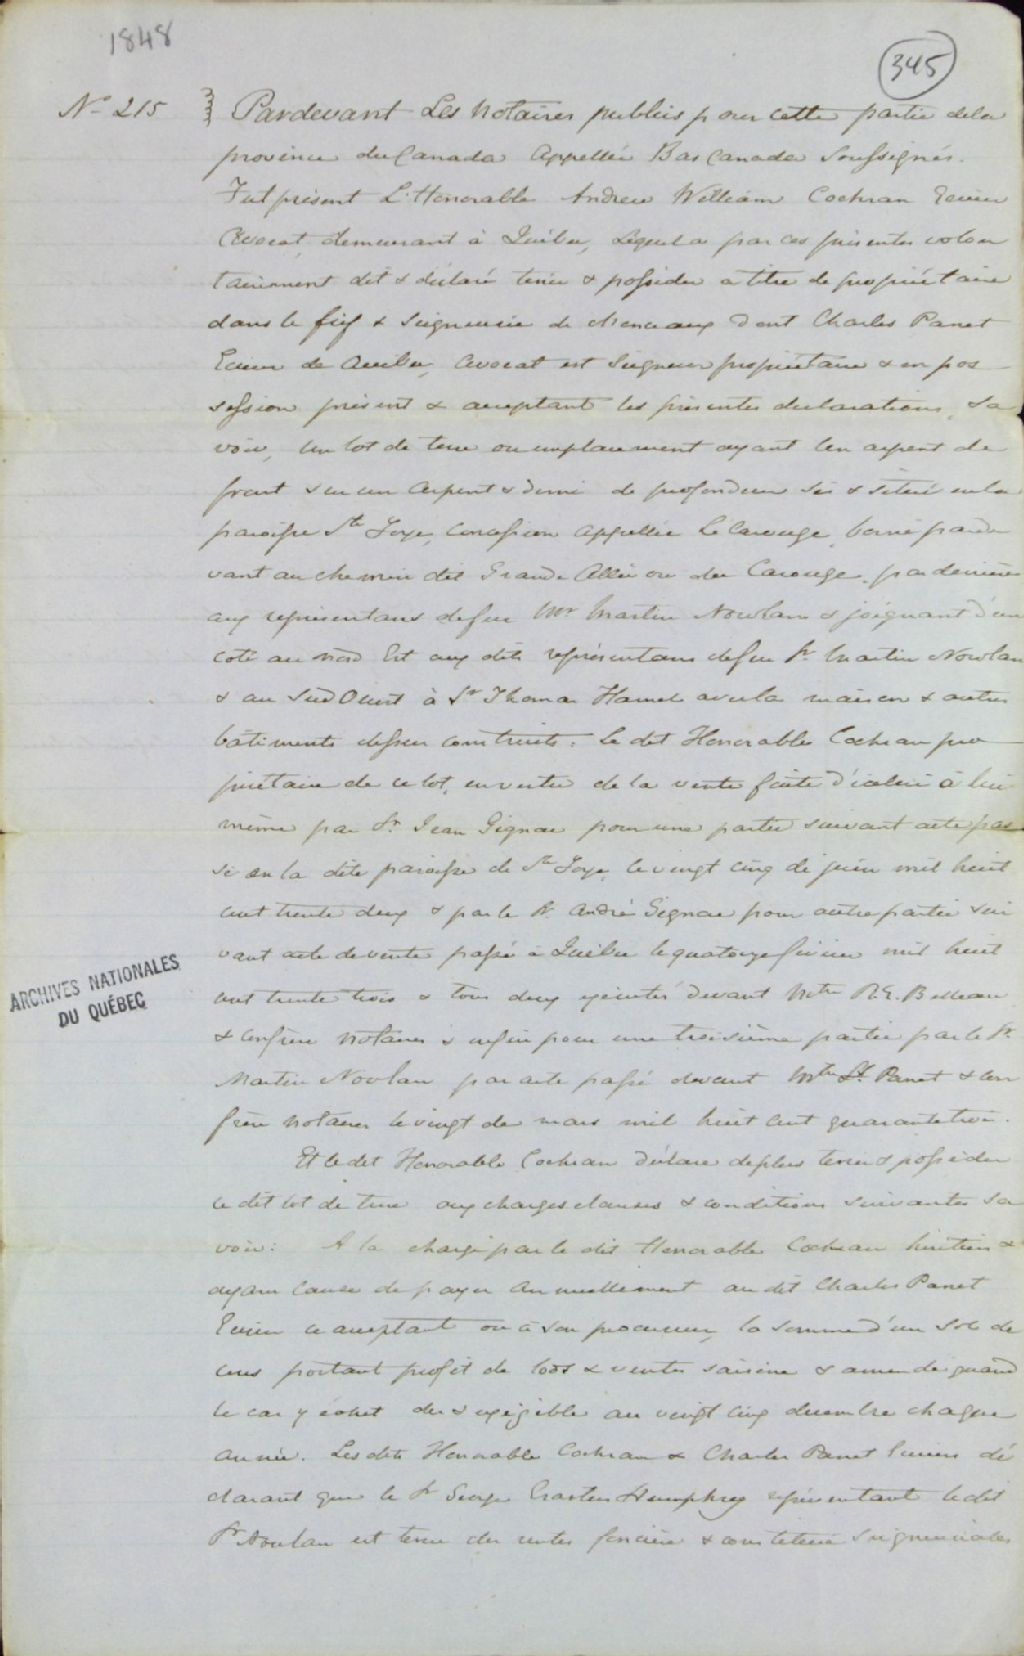 1848
345
No 215 Pardevant Les Notaires publics pour cette partie dela
province du Canada Appellée Bas Canada Soussignés.
Fut présent L'Honorable Andrew William Cochran Ecuier
Avocat, demeurant à Québec, Lequel a par ces présentes volon
tairement dit & déclaré tenir & posséder a titre de propriétaire
dans le fief & Seigneurie de Monceaux dont Charles Panet
Ecuier de Quebec, Avocat est Seigneur propriétaire & en pos
session présent & acceptant les présentes declarations, Sa
voir, Un lot de terre ou emplacement ayant Un arpent de
front sur un Arpent & demi de profondeur sis & situé enla
paroisse Ste Foye, Concession appellée Le Carouge, borné parde
vant au chemin dit Grande Allée ou du Carouge, par derrière
aux représentans defeu Mr Martin Nowlan & joignant d'un
coté au Nord Est aux dits représentans defeu Sr Martin Nowlan
& au Sud Ouest à Sr Thomas Hamel avec la maison & autres
bâtiments dessus construits. Le dit Honorable Cochran pro
priétaire de ce lot, en vertu de la vente faite d'icelui à lui
même par Sr Jean Gignac pour une partie suivant acte pas
sé en la dite paroisse de Ste Foye le vingt cinq de juin mil huit
cent trente deux & par le Sr André Gignac pour autre partie sui
vant acte de vente passé à Québec le quatorze février mil huit
cent trente trois & tous deux exécutés devant Mtre R.G. Belleau
& confrère Notaires & enfin pour une troisième partie par le Sr
Martin Nowlan par acte passé devant Mtre Ls Panet & con
frère Notaires le vingt de mars mil huit cent quarante trois.
Et ledit Honorable Cochran déclare deplus tenir & posséder
ce dit lot de terre aux charges clauses & conditions suivantes sa
voir: A la charge par le dit Honorable Cochran héritiers &
ayans cause de payer Annuellement au dit Charles Panet
Ecuier ce acceptant ou à son procureur, la somme d'un sol de
cens portant profit de lods & ventes saisine & amende quand
le cas y échet du & exigible au vingt cinq decembre chaque
année. Les dits Honorable Cochran & Charles Panet Ecuier dé
clarant que le Sr George Humphrey représentant ledit
Sr Nowlan est tenu des rentes foncière & constituée Seigneuriales
ARCHIVES NATIONALES
DU QUÉBEC